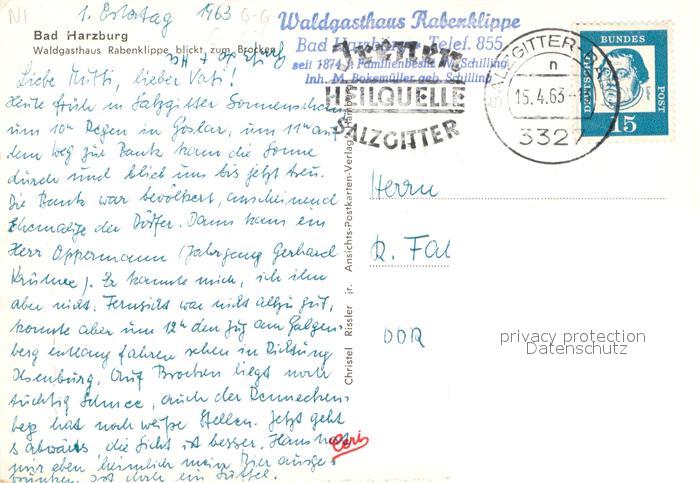 N1
1. Ostertag 1963 G-G
Bad Harzburg
Waldgasthaus Rabenklippe blickt zum Brocken
Liebe Mutti, lieber Vati!
Heute früh in Salzgitter Sonnenschein
um 10h Regen in Goslar, um 11h auf
dem Weg zur Bank kam die Sonne
durch und blieb uns bis jetzt treu.
Die Bank war bevölkert, anscheinend
Ehemalige der Dörfer. Dann kam ein
Herr Oppermann (Jahrgang Gerhard
). Er kannte mich, ich ihn
aber nicht. Fernsicht war nicht allzu gut,
konnte aber um 12h den Zug am Galgen-
berg entlang fahren sehen in Richtung
Ilsenburg. Auf Brocken liegt noch
tüchtig Schnee, auch der Rennecken-
berg hat noch weiße Stellen. Jetzt geht
s abwärts, die Sicht ist besser. Hans hat
mir eben heimlich mein Bier ausge-
trunken, ist doch ein Süffel.
Waldgasthaus Rabenklippe
Bad Harzburg - Telef. 855
seit 1874 i. Familienbesitz W. Schilling
Inh. M. Bokemüller geb. Schilling
HEILQUELLE
SALZGITTER
SALZGITTER-BAD
n
15.4.63
3327
DEUTSCHE
BUNDES
POST
15
Christel Rissler jr. Ansichts-Postkarten-Verlag
Herrn
R. Fal
DDR
privacy protection
Datenschutz